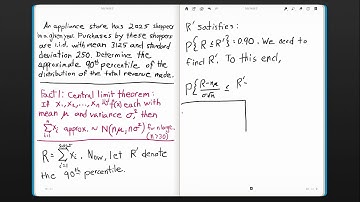 An appliance store has 2025 shoppers
in a given year. Purchases by these shoppers
are i.i.d. with mean 3125 and standard
deviation 250. Determine the
approximate 90th percentile of the
distribution of the total revenue made.
Fact 1: Central limit theorem:
If X₁, X₂, ..., Xₙ iid f(x) each with
mean μ and variance σ², then
∑ Xᵢ approx. ~ N(nμ, nσ²) for n large.
i=1
(n≥30)
R = ∑ Xᵢ. Now, let R' denote
i=1
the 90th percentile.
R' satisfies:
P{R ≤ R'} = 0.90. We need to
find R'. To this end,
P{ (R-nμ)/(σ√n) ≤ R'-